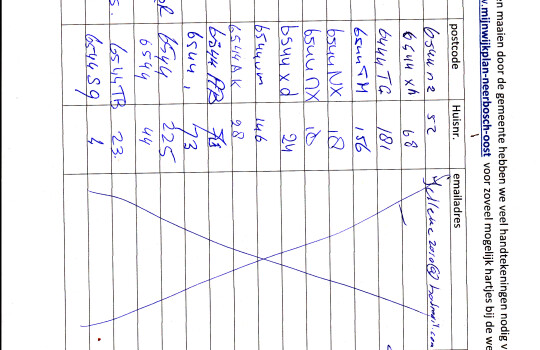 en maaien door de gemeente hebben we veel handtekeningen nodig v
w.mijnwijkplan-neerbosch-oost voor zoveel mogelijk hartjes bij de we
postcode Huisnr. emailadres
6544nz 52
6544xh 68
6444TG 181
6544TM 156
6544NX 18
6544NX 18
6544xd 24
6544vm 146
6544AK 28
6544 73
6544 225
6544 44
6544TB 23
6544Sg 4